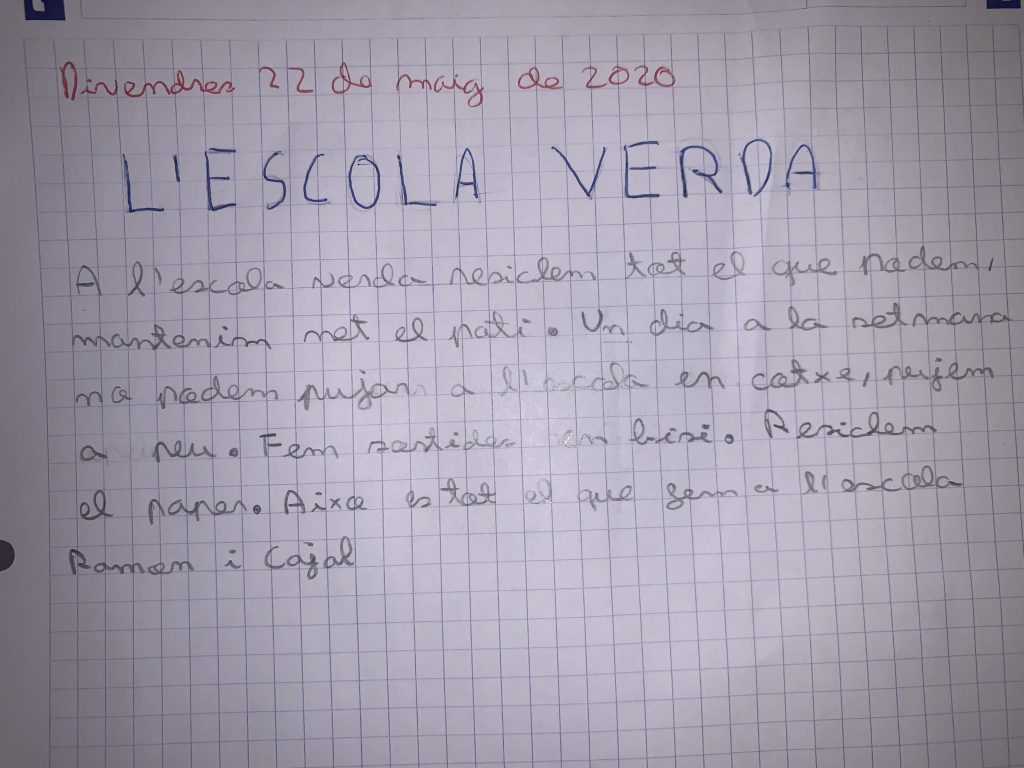 Divendres 22 de maig de 2020
L'ESCOLA VERDA
A l'escola verda resiclem tot el que podem,
mantenim net el pati. Un dia a la setmana
no podem pujar a l'escola en cotxe, pujem
a peu. Fem sortides en bisi. Resiclem
el paper. Aixo es tot el que fem a l'escola
Ramon i Cajal